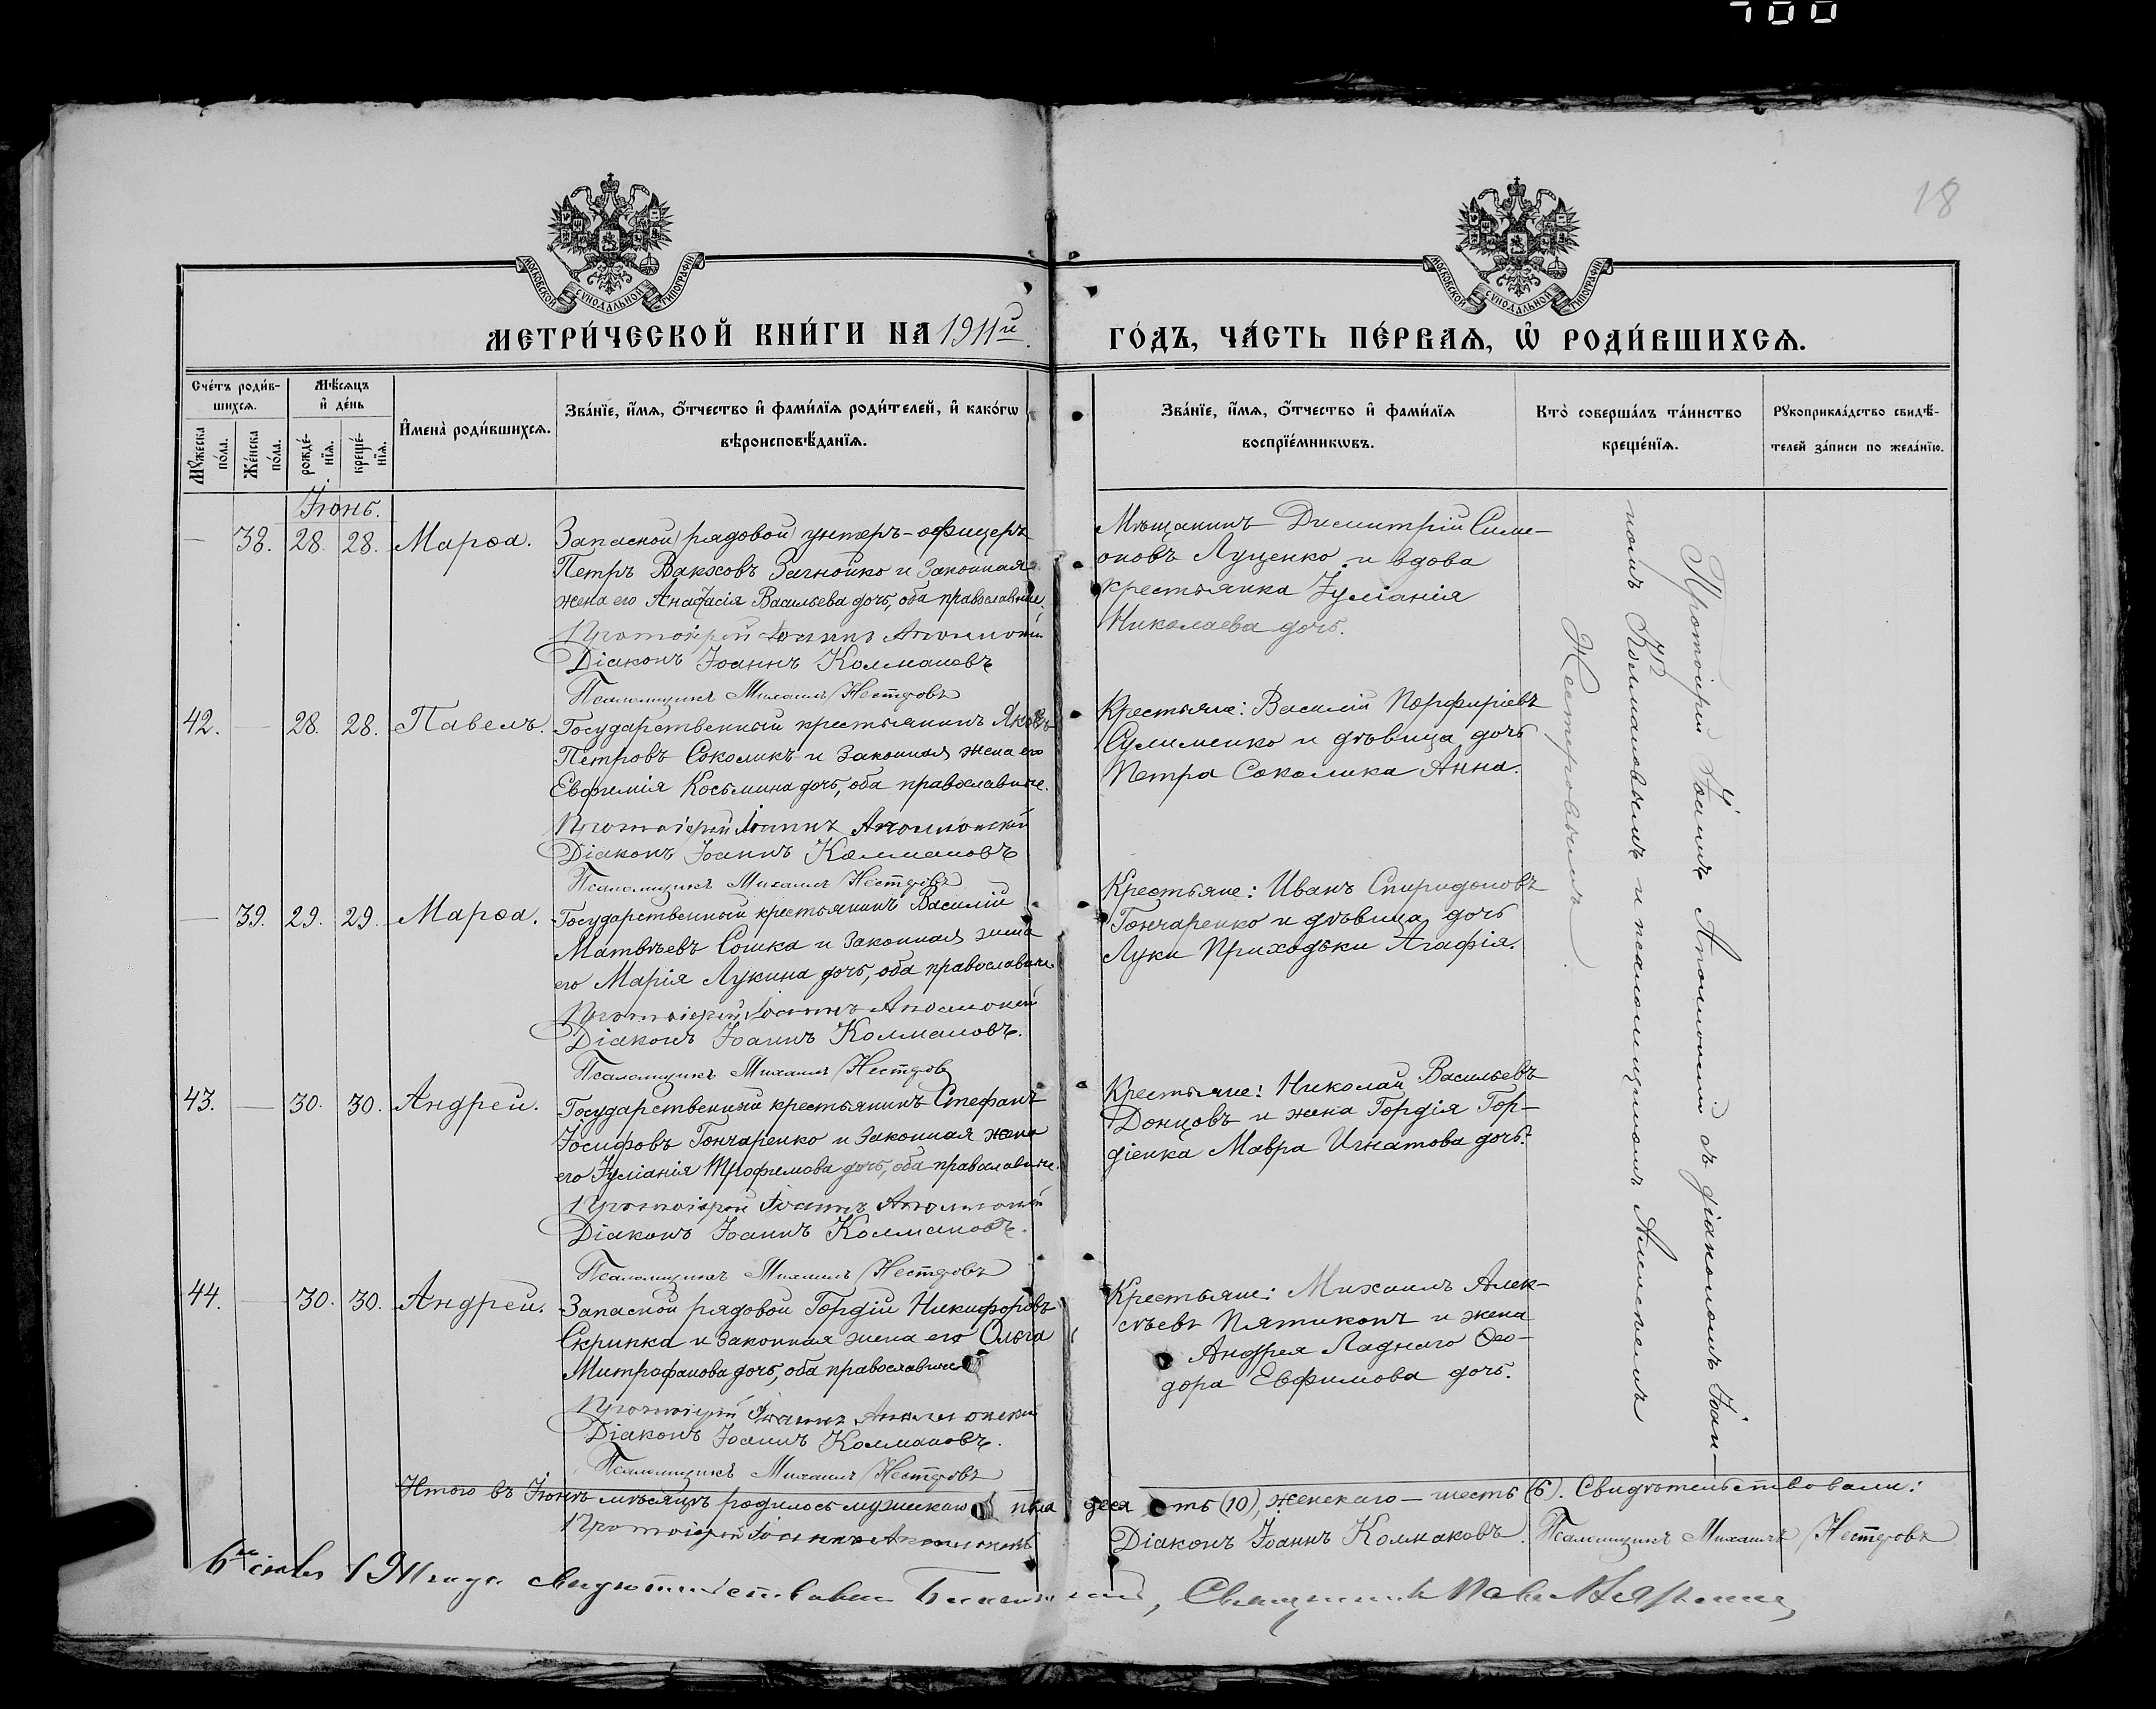 700
18
МОСКОВСКОЙ СѴНОДАЛЬНОЙ ТИПОГРАФІИ
МОСКОВСКОЙ СѴНОДАЛЬНОЙ ТИПОГРАФІИ
МЕТРИ́ЧЕСКОЙ КНИ́ГИ НА 1911й
ГО́ДЪ, ЧА́СТЬ ПЕ́РВАѦ, Ѡ РОДИ́ВШИХСѦ.
Сче́тъ роди́в-
шихсѧ.
Мꙋжеска
по́ла.
Же́нска
по́ла.
Мѣ́сѧцъ
и҆ де́нь
рожде́-
нїѧ.
креще́-
нїѧ.
И҆мена̀ роди́вшихсѧ.
Зва́нїе, и҆́мѧ, ѻ҆́тчество и҆ фами́лїѧ роди́телей, и҆ како́гѡ
вѣроисповѣ́данїѧ.
Зва́нїе, и҆́мѧ, ѻ҆́тчество и҆ фами́лїѧ
воспрїе́мникѡвъ.
Кто̀ соверша́лъ та́инство
креще́нїѧ.
Рꙋкоприкла́дство свидѣ́-
телей за́писи по жела́нїю.
Іюнь.
— 38. 28. 28. Марѳа.
Запасной (рядовой) унтеръ-офицеръ
Петръ Вакховъ и законная
жена его Анастасія Васильева дочь, оба православные.
Протоіерей Іоаннъ
Діаконъ Іоаннъ Колмаковъ
Псаломщикъ Михаилъ Нестеровъ
Мѣщанинъ Димитрій Симе-
оновъ Луценко и вдова
крестьянка Іуліанія
Николаева дочь.
42. — 28. 28. Павелъ.
Государственный крестьянинъ Яковъ
Петровъ Соколикъ и законная жена его
Евфимія Косьмина дочь, оба православные.
Протоіерей Іоаннъ
Діаконъ Іоаннъ Колмаковъ
Псаломщикъ Михаилъ Нестеровъ
Крестьяне: Василій Порфиріевъ
Сулименко и дѣвица дочь
Петра Соколика Анна.
— 39. 29. 29. Марѳа.
Государственный крестьянинъ Василій
Матвѣевъ Сошка и законная жена
его Марія Лукина дочь, оба православные
Протоіерей Іоаннъ
Діаконъ Іоаннъ Колмаковъ.
Псаломщикъ Михаилъ Нестеровъ
Крестьяне: Иванъ Спиридоновъ
Гончаренко и дѣвица дочь
Луки Приходьки Агафія.
43. — 30. 30. Андрей.
Государственный крестьянинъ Стефанъ
Іосифовъ Гончаренко и законная жена
его Іуліанія Трофимова дочь, оба православные.
Протоіерей Іоаннъ
Діаконъ Іоаннъ Колмаковъ.
Псаломщикъ Михаилъ Нестеровъ
Крестьяне: Николай Васильевъ
Донцовъ и жена Гордія Гор-
діенка Мавра Игнатова дочь.
44. — 30. 30. Андрей.
Запасной рядовой Гордій Никифоровъ
Скрипка и законная жена его Ольга
Митрофанова дочь, оба православные
Протоіерей Іоаннъ
Діаконъ Іоаннъ Колмаковъ.
Псаломщикъ Михаилъ Нестеровъ
Крестьяне: Михаилъ Алек-
сѣевъ Пятикопъ и жена
Андрея Ладнаго Ѳео-
дора Евфимова дочь.
Протоіерей Іоаннъ съ діакономъ Іоан-
номъ Колмаковымъ и псаломщикомъ
Нестеровымъ.
Итого въ Іюнѣ мѣсяцѣ родилось мужскаго пола десять (10), женскаго — шесть (6). Свидѣтельствовали:
Протоіерей Іоаннъ
Діаконъ Іоаннъ Колмаковъ. Псаломщикъ Михаилъ Нестеровъ
1911 года свидѣтельствовалъ Священникъ